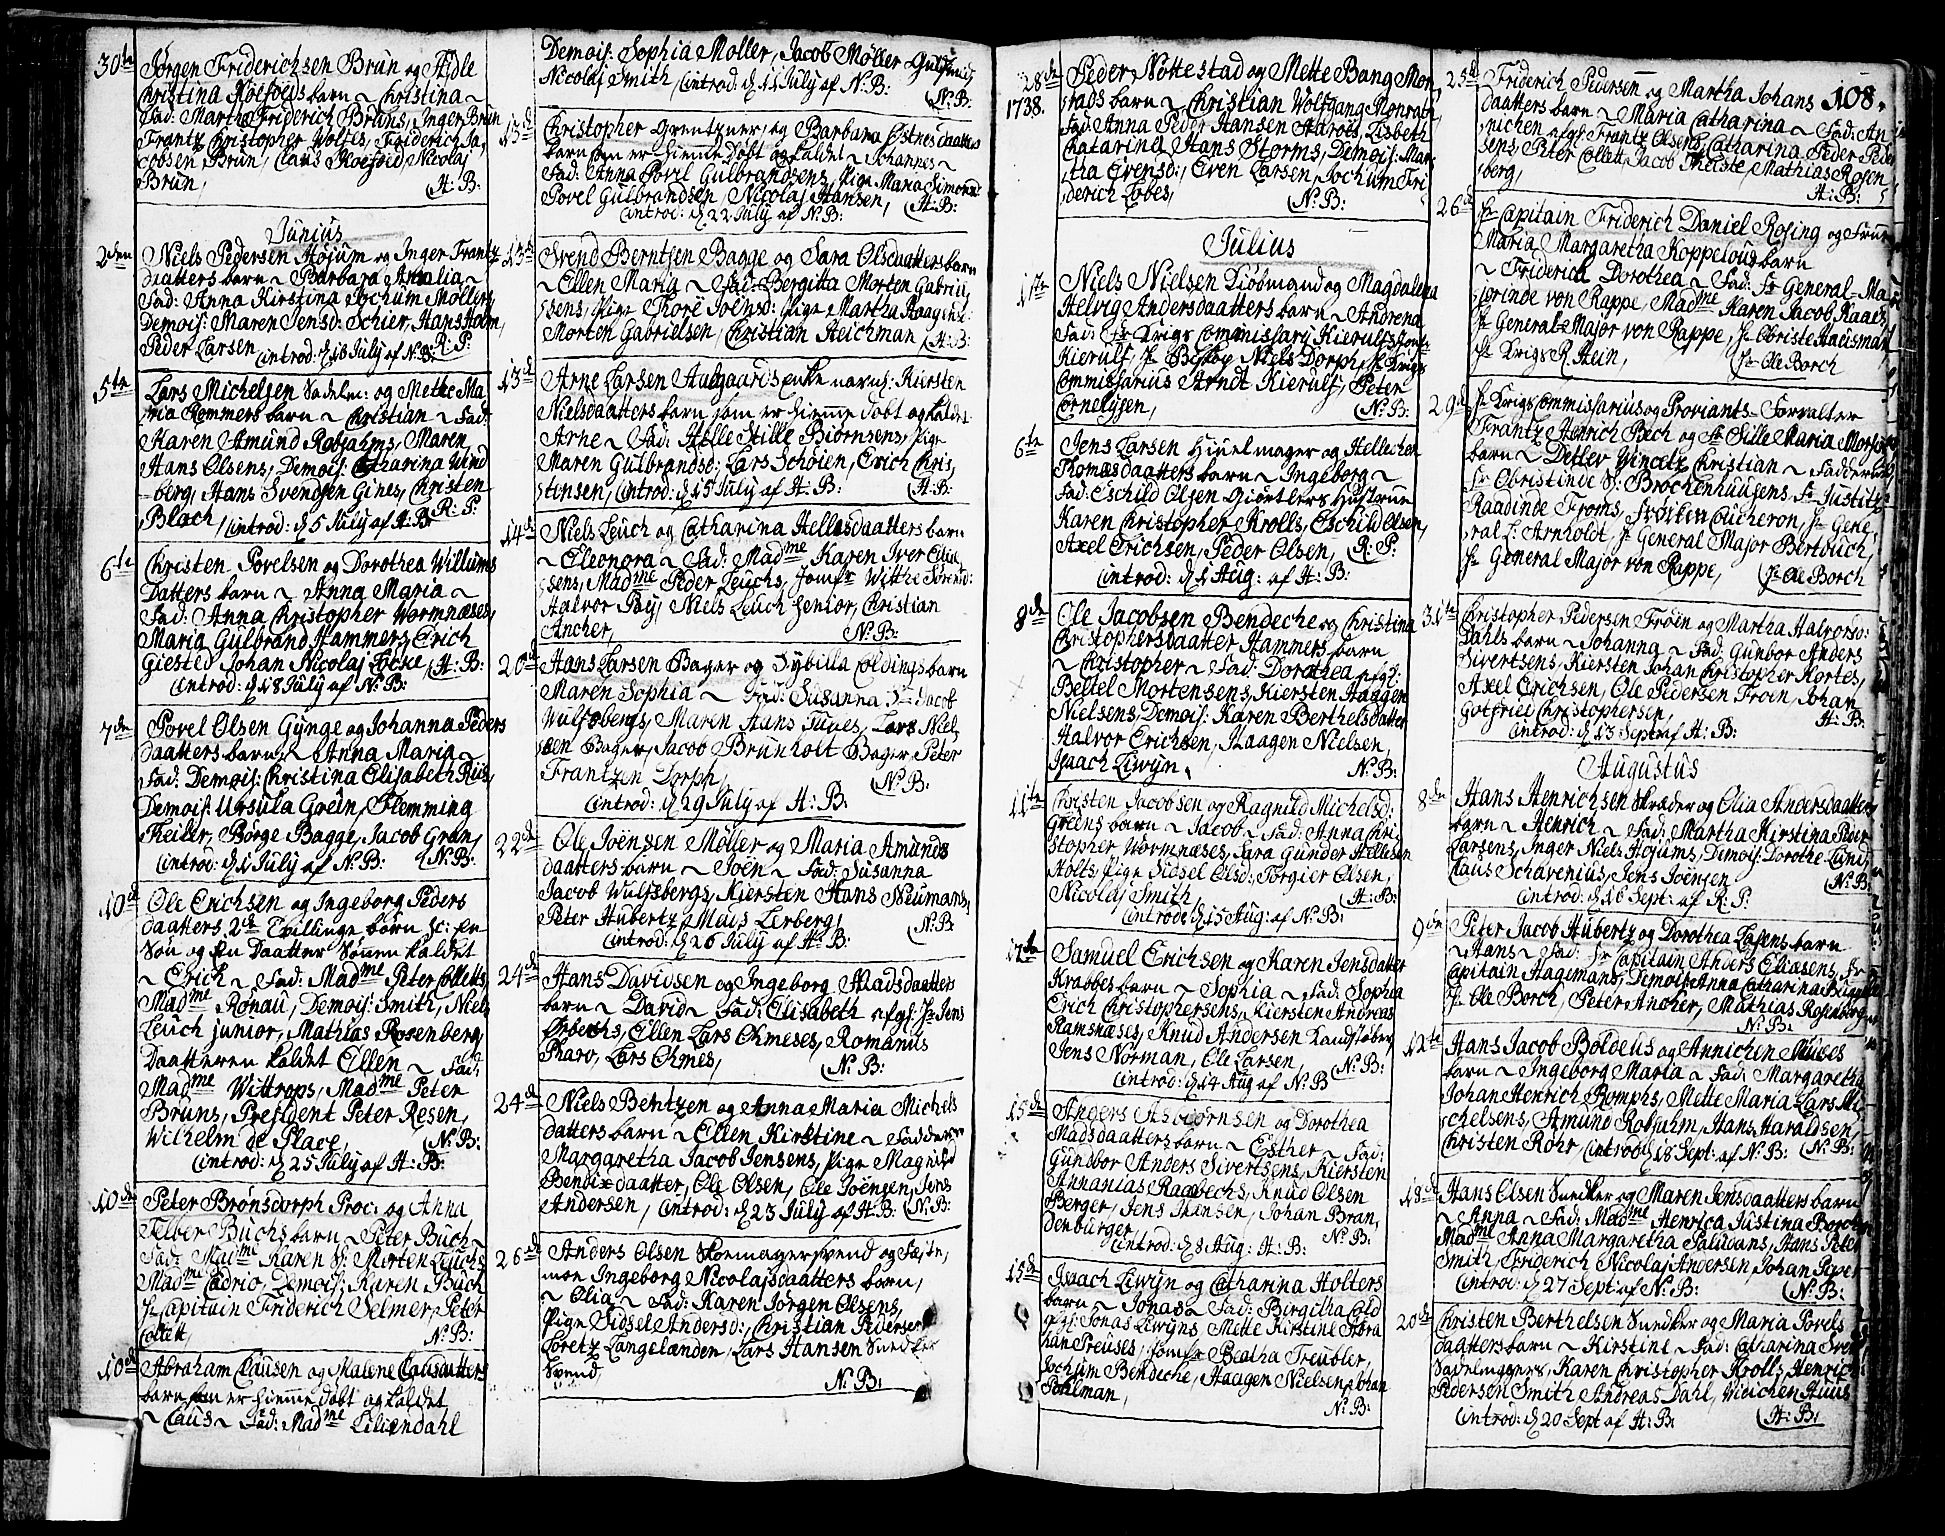 30te
Jörgen Friderichsen Brun og Sidle
Christina Roefoeds barn ~ Christina ~
Fad: Martha Friderich Bruns, Inger Brun
Frantz Christopher Wolfes, Friderich Ja,
cobsen Brun, Claus Roefoid, Nicolaj
Brun, H: B:
Junius
2den
Niels Pedersen Höjum og Inger Frantz
daatters barn ~ Barbara Amalia ~
Fad: Anna Kirstina Jochum Möllers
Demois: Maren Jensd: Schier, Hans Holm,
Peder Larsen introd: d 16 July af N: B: R: P:
5te
Lars Michelsen Sadelm: og Mette Ma
ria Rommers barn ~ Christian ~ Fad:
Karen Amund Robsahms, Maren
Hans Olsens, Demois: Catharina Wind
berg, Hans Svendsen Gines, Christen
Blach introd: d 5 July af H: B: R: P:
6te
Christen Povelsen og Dorothea Willums
Datters barn ~ Anna Maria ~
Fad: Anna Christopher Wormnæses,
Maria Gulbrand Hammers, Erich
Giested Johan Nicolaj Focke H: B:
introd: d 18 July af N: B:
7de
Povel Olsen Gynge og Johanna Peders
daatters barn ~ Anna Maria ~
Fad: Demois: Christina Elisabeth Riis,
Demois: Ursula Grün, Flemming
Reiler, Börge Bagge, Jacob Grün,
introd: d 1 July af N: B: N: B:
10de
Ole Erichsen og Ingeborg Peders
daatters 2de Tvillinge börn sc: en
Sön og en Daatter Sönnen kaldet
~ Erich ~ Fad: Madme Peter Colletts,
Madme Ronau, Demois: Smith, Niels
Leuch junior, Mathias Rosenberg,
Daatteren kaldet Ellen ~ Fad:
Madme Wittrops, Madme Peter
Bruns, President Peter Resen,
Wilhelm de Place, N: B:
introd: d 25 July af H: B:
10de
Peter Brönsdorph Proc: og Anna
Felber Buchs barn ~ Peter Buch ~
Fad: Madme Karen S: Morten Leuchs,
Madme Cadrio, Demois: Karen Buch
Hr Capitain Friderich Selmer, Peter
Collett, N: B:
10de
Abraham Clausen og Malene Clausdatters
barn som er hiemme döbt og kaldet
~ Claus ~ Fad: Madme Liliendahl
Demois: Sophia Möller, Jacob Möller Gulsmed
Nicolaj Smith, introd: d 11 July af N: B:
N: B:
13de
Christopher Grentzner og Barbara Östnesdaatters
barn som er hiemme döbt og kaldet ~ Johannes ~
Fad: Anna Povil Gulbrandsens, Pige Maria Simonsd:
Povel Gulbrandsen, Nicolaj Hansen, H: B:
introd: d 22 July af N: B:
13de
Svend Berntsen Bagge og Sara Olsdaatters barn
~ Ellen Maria ~ Fad: Bergitta Morten Gabriel
sens, Pige Thore Joensd: Pige Martha Haagensd:
Morten Gabrielsen, Christian Heichman, H: B:
13de
Arne Larsen Aulgaards enke navnl: Kiersten
Nielsdaatters barn som er hiemme döbt og kaldet
Arne ~ Fad: Helle Stille Biörnsens, Pige
Maren Gulbrandsd: Lars Schöien, Erich Chris,
stensen, introd: d 15 July af H: B: H: B:
14de
Niels Leuch og Catharina Hellesdaatters barn
~ Eleonora ~ Fad: Madme Karen Iver Elie
sens, Madme Peder Leuchs, Jomfr Witthe Sörensd:
Halvor Pay, Niels Leuch senior, Christian
Ancher, N: B:
20de
Hans Larsen Bager og Sybilla Coldings barn
Maren Sophia ~ Fad: Susanna Jacob
Wulfsbergs, Maren Hans Tunes, Lars Niel,
sen Bager, Jacob Brunholt Bager, Peter
Frantzen Dorph, N: B:
introd: d 29 July af H: B:
22de
Ole Joensen Möller og Maria Amunds
daatters barn ~ Joen ~ Fad: Susanna
Jacob Wulfsbergs, Kiersten Hans Neumans,
Peter Hubertz, Mads Lerberg, N: B:
introd: d 26 July af H: B:
24de
Hans Davidsen og Ingeborg Madsdaatters
barn ~ David ~ Fad: Elisabeth afgl: Hr Jens
Örbechs, Ellen Lars Ohmeses, Romanus
Pharo, Lars Ohmes, N: B:
24de
Niels Bentzen og Anna Maria Michels
datters barn ~ Ellen Kirstine ~ Faddere
Margaretha Jacob Jensens, Pige Magnild
Bendixdaatter, Ole Olsen, Ole Joensen, Jens
Andersen, introd: d 23 July af H: B: N: B:
26de
Anders Olsen Skomagersvend og Fæste,
moe Ingeborg Nicolajsdaatters barn,
~ Olia ~ Fad: Karen Jörgen Olsens,
Pige Sidsel Andersd:, Christian Pedersen
Loretz Langelanden, Lars Hansen Snedker
Svend, N: B:
28de
1738.
Peder Nöttestad og Mette Bang Mon
rads barn ~ Christian Wolfgang Monrad ~
Fad: Anna Peder Hansen Harots, Lisbeth
Chatarine Hans Storms, Demois: Mar,
tha Evensd:, Even Larsen, Jochum Fri
derich Tobes, N: B:
Julius
1te
Niels Nielsen Kiöbmand og Magdalena
Helvig Andersdaatters barn ~ Andrena
Fad: Fr Krigs Commissary Kierulfs, Jomfr
Kierulf, Hr Biskop Niels Dorph, Hr Krigs
Commissarius Arndt Kierulf, Peter
Cornelysen, N: B:
6te
Jens Larsen Hiulmager og Hellechen
Thomesdaatters barn ~ Ingeborg ~
Fad: Eschild Olsen Giörtlers Hustrue
Karen Christopher Krolls, Eschild Olsen,
Axel Erichsen, Peder Olsen, R: P:
introd: d 1 Aug: af H: B:
8de
Ole Jacobsen Bendeche og Christina
Christophersdaatter Hammers barn
~ Christopher ~ Fad: Dorothea afgl:
Bertel Mortensens, Kiersten Haagen
Nielsens, Demois: Karen Berthelsdatter
Halvor Erichsen, Haagen Nielsen,
Isaach Liwyn. N: B:
11te
Christen Jacobsen og Ragnild Michelsd:
Greens barn ~ Jacob ~ Fad: Anna Chri,
stopher Wormnæses, Sara Gunder Hellesen
Holts, Pige Sidsel Olsd: Torgier Olsen,
Nicolaj Smith H: B:
introd: d 15 Aug: af N: B:
17de
Samuel Erichsen og Karen Jensdatter
Krabbes barn ~ Sophia ~ Fad: Sophia
Erich Christophersens, Kiersten Andreas
Ramsnæses, Knud Andersen Kandstöber,
Jens Norman, Ole Larsen, N: B:
introd: d 14 Aug af N: B
15de
Anders Asbiörnsen og Dorothea
Madsdaatters barn ~ Esther ~ Fad:
Gundbor Anders Sivertsens, Kiersten
Annanias Raabechs, Knud Olsen
Berger, Jens Jhensen, Johan Bran,
denburger N: B:
introd: d 8 Aug: H: B:
15de
Isaach Liwyn og Catharina Holters
barn ~ Jonas ~ Fad: Bergitha Cold
afgl: Jonas Liwyns, Mette Kirstine Abra
ham Preuses, Jomfr Beatha Treubler,
Jochum Bendeche, Haagen Nielsen, Johan
Pohlman, N: B:
25de
Friderich Pedersen og Martha Johans 108.
daatters barn ~ Maria Catharina ~ Fad: An
nichen afgl: Frantz Olsens, Catharina Peder Peder
sens, Peter Collett, Jacob Theiste, Mathias Rosen
berg, H: B:
26de
Hr Capitain Friderich Daniel Rosing og Frue
Maria Margaretha Koppelous barn
~ Friderich Dorothea ~ Fad: Fr General-Ma
jorinde von Rappe, Madme Karen Jacob Raaes,
Hr General-Major von Rappe, Hr Obriste Hausman
Hr Krigs R. Stein, Hr Ole Borch
29de
Hr Krigs Commissarius og Proviants-Forvalter
Frantz Henrich Bech og Fr Sille Maria Morsses
barn ~ Detlev Vincetz Christian ~ Faddere
Fr Obristinde S: Brochenhusens, Fr Justitz
Raadinde Froms, Frökten Coucheron, Hr Gene,
ral L: Arnholdt, Hr General Major Bertouch,
Hr General Major von Rappe, Hr Ole Borch
31te
Christopher Pedersen Fröen og Martha Halvorsd:
Dahls barn ~ Johanna ~ Fad: Gunbor Anders
Sivertsens, Kiersten Johan Christopher Kortes,
Axel Erichsen, Ole Pedersen Froen, Johan
Gotfried Christophersen, H: B:
introd: d 13 Sept af H: B:
Augustus
8de
Hans Henrichsen Skræder og Olia Andersdaatters
barn ~ Henrich ~ Fad: Martha Kirstina Peder
Larsens, Inger Niels Höjums, Demois: Dorothe Lund
Claus Schavenius, Jens Joensen N: B:
introd: d 16 Sept: af R: P:
9de
Peter Jacob Hubertz og Dorothea Lassens barn
~ Hans ~ Fad: Fr Capitain Anders Eliasens, Fr
Capitain Hagemans, Demois: Anna Catharina
Hr Ole Borch, Peter Ancher, Mathias Rosenberg
N: B:
12te
Hans Jacob Boldeus og Annichen Muuses
barn ~ Ingeborg Maria ~ Fad: Margaretha
Johan Henrich Romphs, Mette Maria Lars Mi
chelsens, Amund Robsahm, Hans Haraldsen,
Christen Rohr, introd: d 18 Sept: af N: B: N: B:
18de
Hans Olsen Snedker og Maren Jensdaatters barn
~ Anna ~ Fad: Madme Henrica Justina Borchs
Madme Anna Margaretha Paludans, Hans Peter
Smith, Friderich Nicolaj Andersen, Johan Peper
introd: d 27 Sept: af N: B: N: B:
20de
Christen Berthelsen Snedker og Maria Povels
daatters barn ~ Kirstine ~ Fad: Catharina Sven
Sadelmagers, Karen Christopher Krolls, Henrich
Pedersen Smith, Andreas Dahl, Vinichen Huus
introd: d 20 Sept af H: B: H: B: